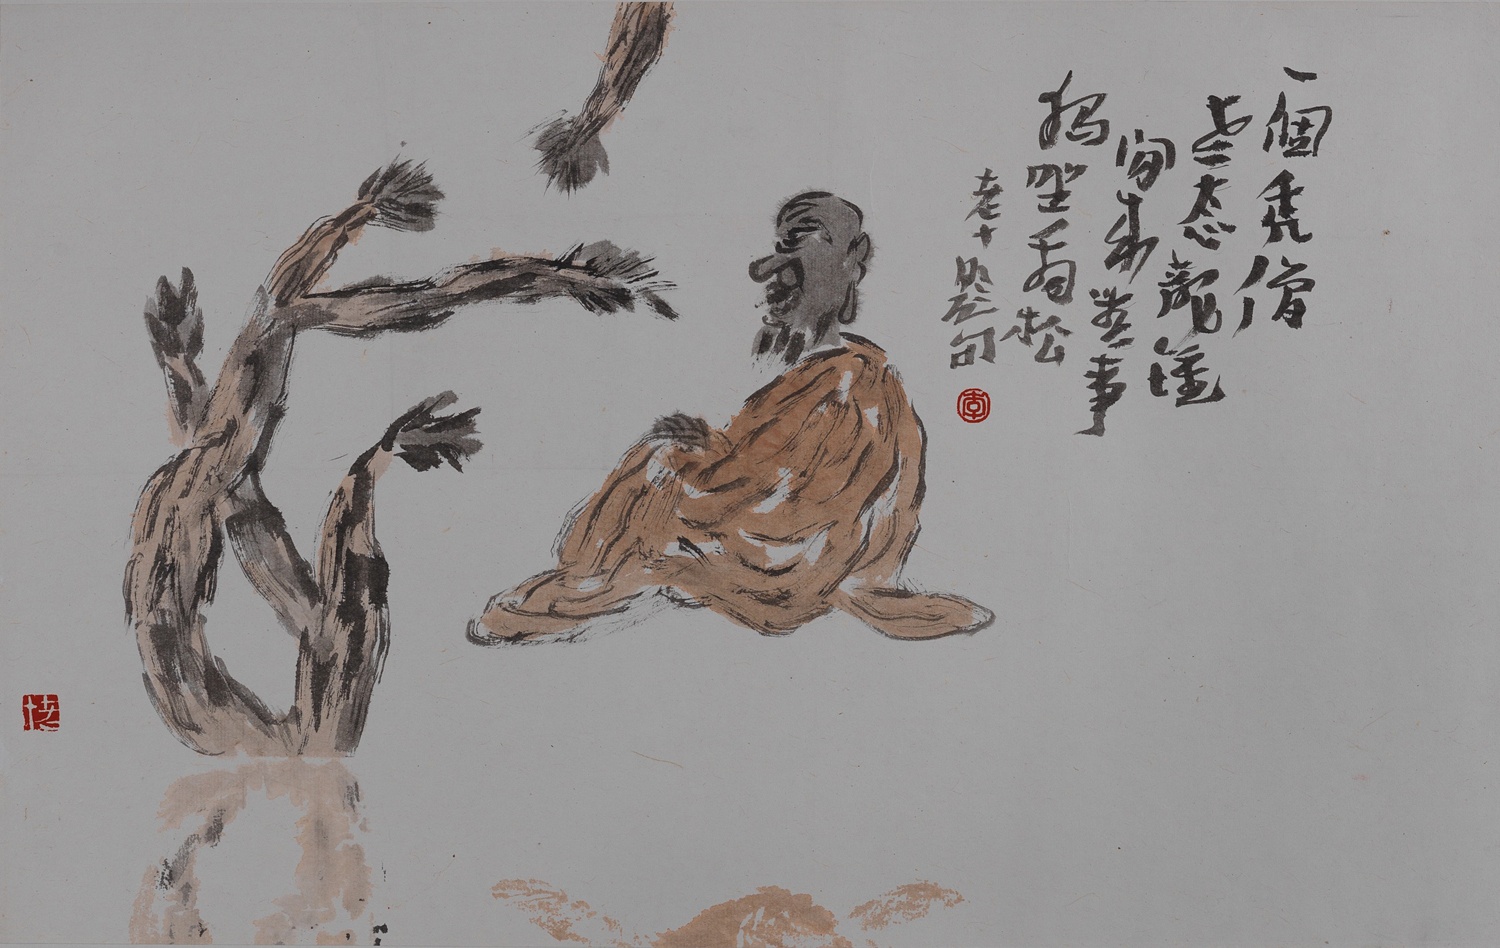 一個禿僧
老态龍鍾
閑來無事
獨坐看松
老十題句